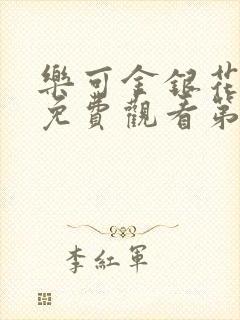 樂可金銀花
免費觀看第
李紅軍